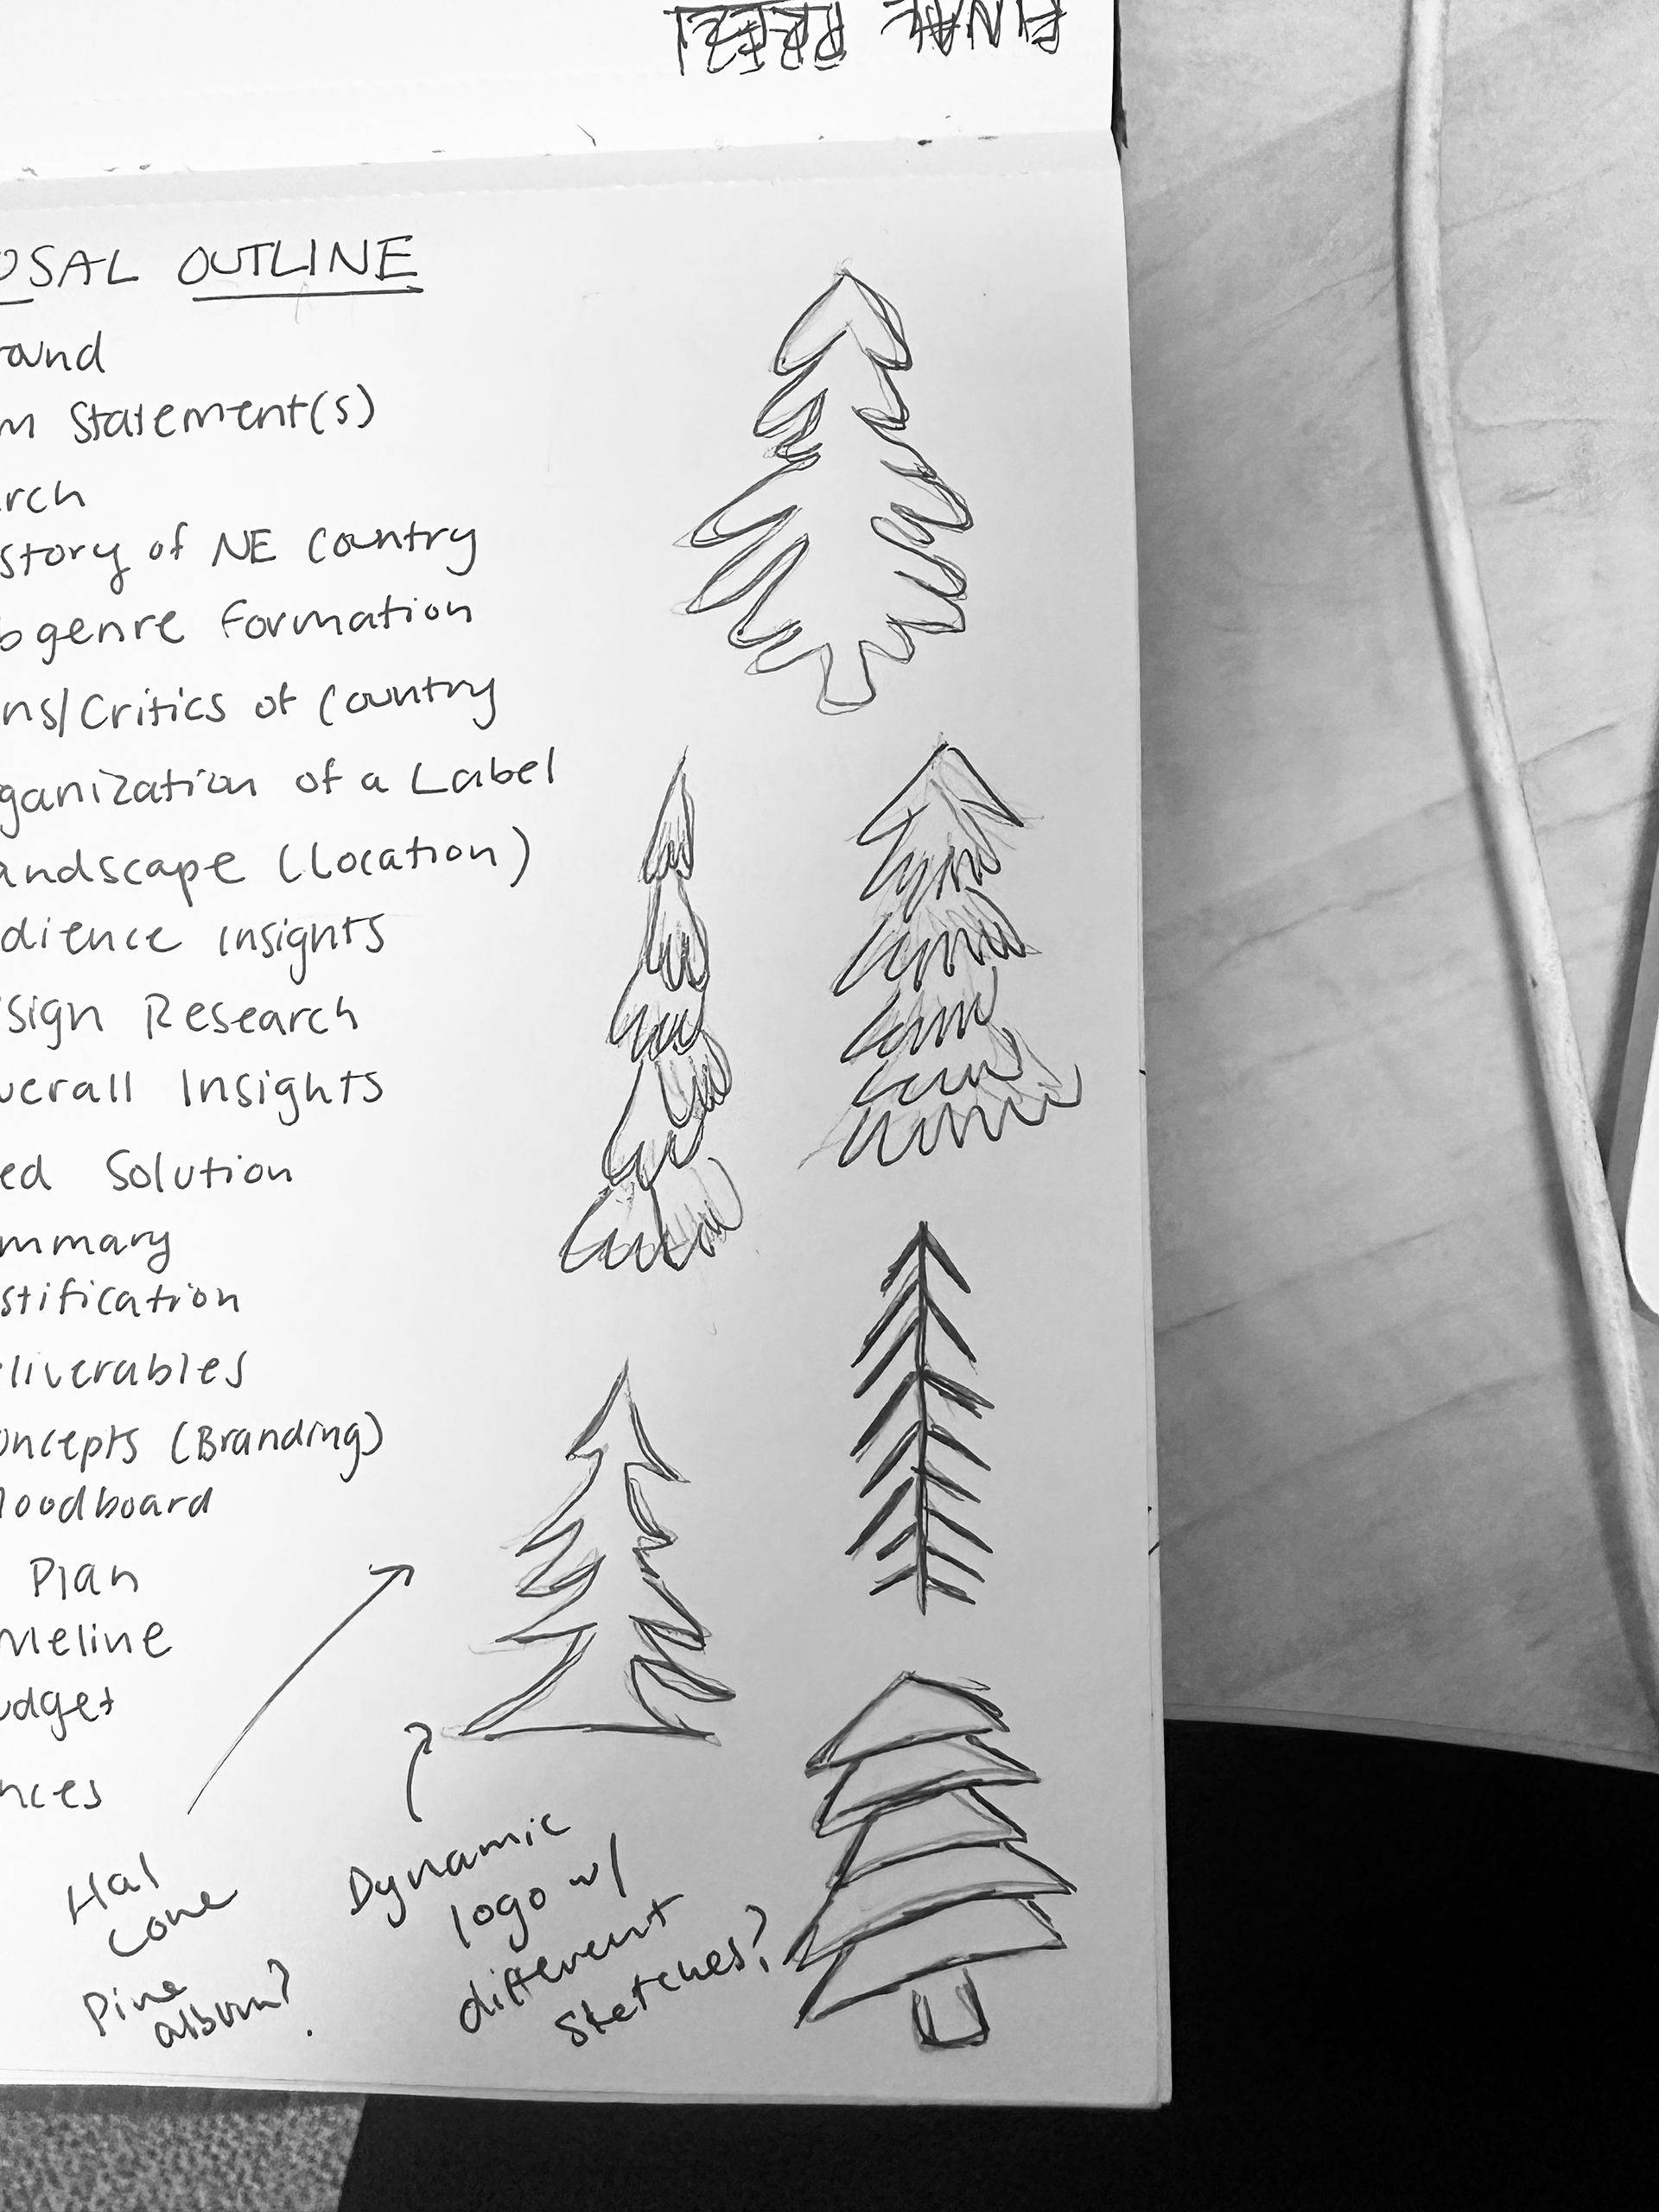 OSAL OUTLINE
ound
m Statement(s)
rch
story of NE Country
bgenre Formation
ns/Critics of Country
ganization of a Label
andscape (Location)
dience Insights
sign Research
verall Insights
ed Solution
mmary
stification
eliverables
oncepts (Branding)
loodboard
Plan
meline
udget
nces
Hal
Cone
Pine
album?
Dynamic
logo w/
different
sketches?